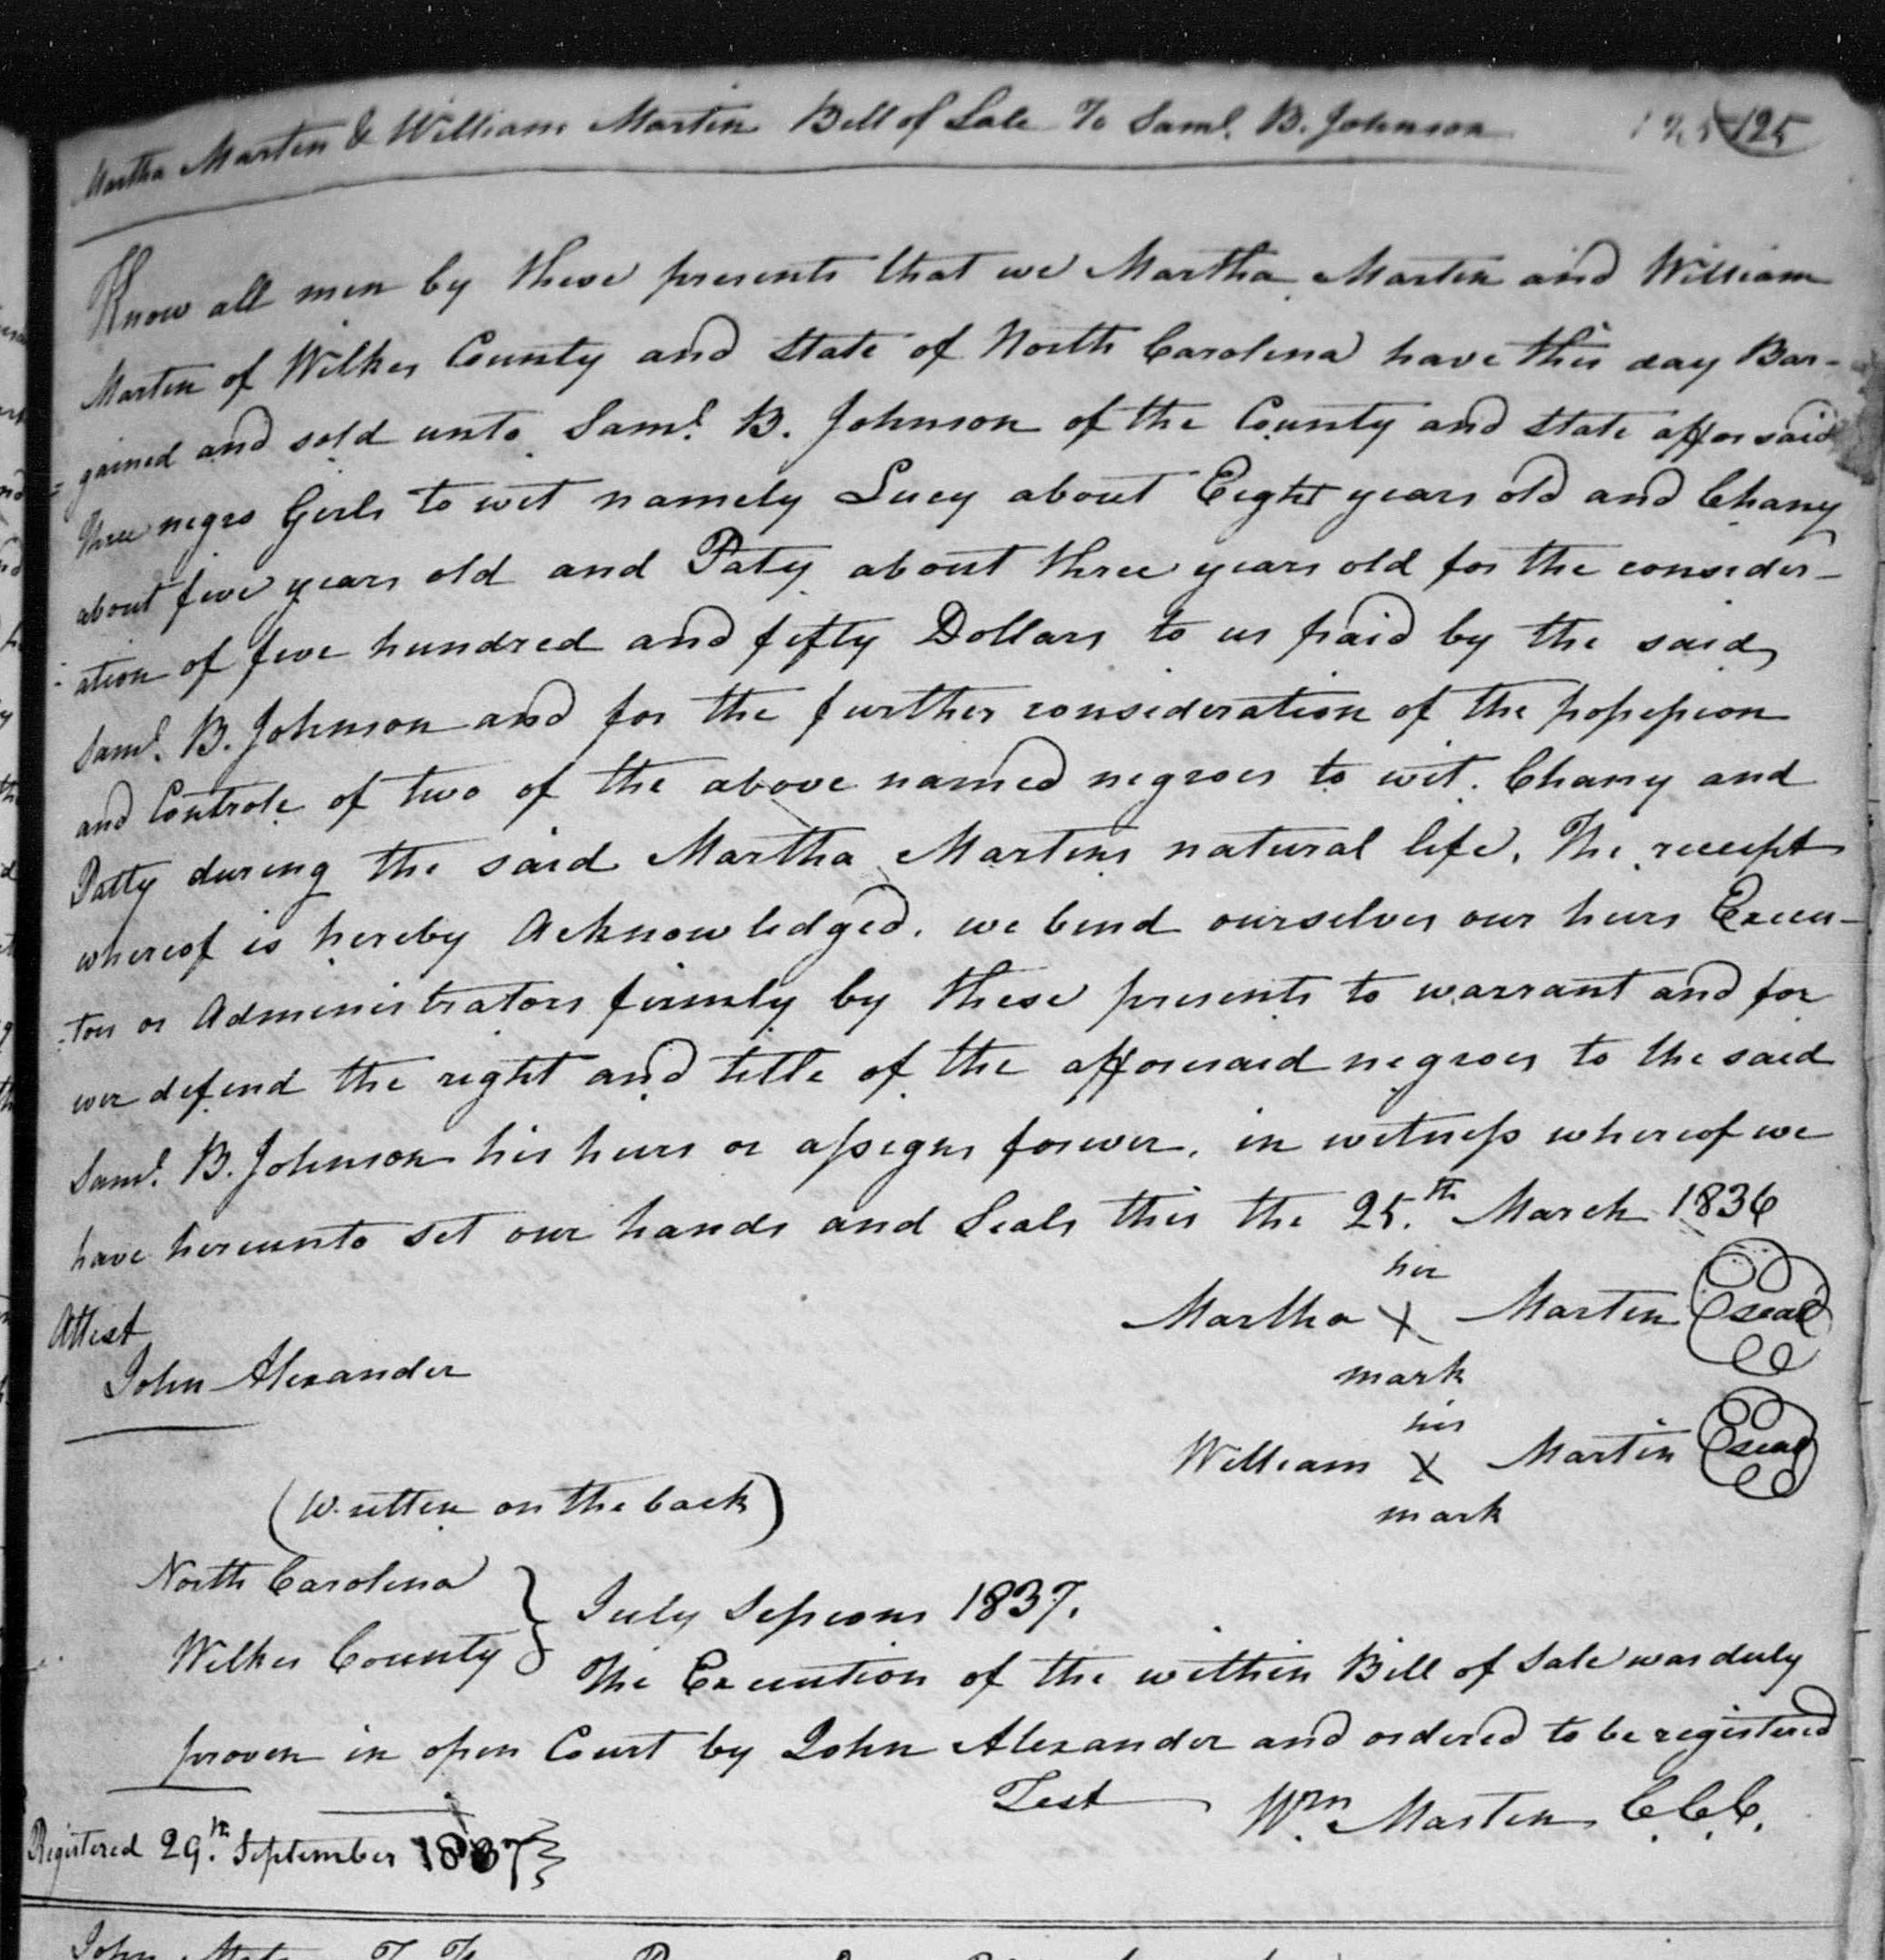 Martha Martin & William Martin Bill of Sale To Saml. B. Johnson 125 125
Know all men by these presents that we Martha Martin and William
Martin of Wilkes County and State of North Carolina have this day Bar-
gained and sold unto Saml. B. Johnson of the County and State afforsaid
three negro Girls to wit namely Lucy about Eight years old and Chany
about five years old and Paty about three years old for the consider-
ation of five hundred and fifty Dollars to us paid by the said
Saml. B. Johnson and for the further consideration of the possession
and Controle of two of the above named negroes to wit. Chany and
Patty during the said Martha Martins natural life. The receipt
whereof is hereby Acknowledged. we bind ourselves our heirs Execu-
tors or Administrators firmly by these presents to warrant and for
ever defend the right and title of the afforesaid negroes to the said
Saml. B. Johnson his heirs or assigns forever. in witness whereof we
have hereunto set our hands and Seals this the 25.th March 1836
her
Attest Martha X Martin seal
John Alexander mark
his
William X Martin seal
mark
(Written on the back)
North Carolina
Wilkes County } July Sessions 1837.
The Execution of the within Bill of Sale was duly
proven in open Court by John Alexander and ordered to be registered
Test Wm. Martin C.C.C.
Registered 29.th September 1837
John